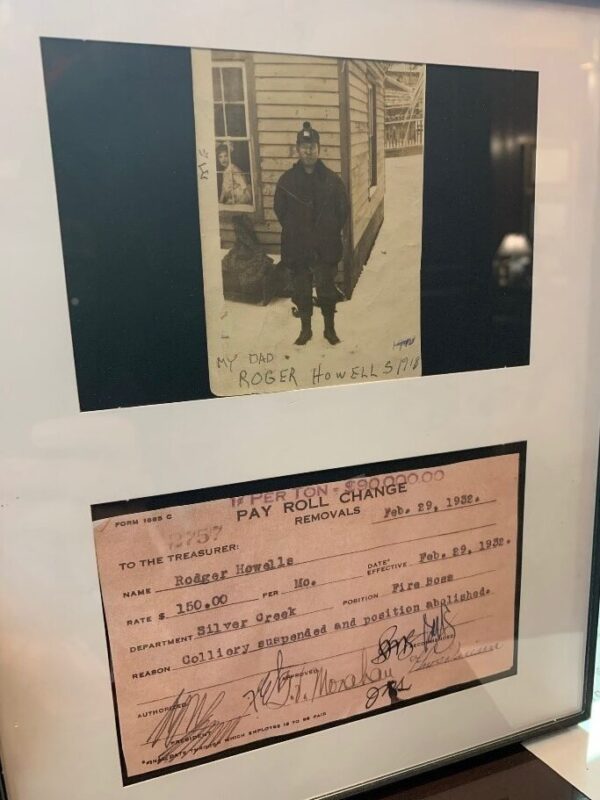 ME
MY DAD
ROGER HOWELLS 1918
1¢ PER TON - $90,000.00
FORM 1085 C
PAY ROLL CHANGE
REMOVALS
Feb. 29, 1932.
2757
TO THE TREASURER:
NAME Rodger Howells
RATE $ 150.00 PER Mo. DATE* EFFECTIVE Feb. 29, 1932.
DEPARTMENT Silver Creek POSITION Fire Boss
REASON Colliery suspended and position abolished.
AUTHORIZED APPROVED RECOMMENDED
PRESIDENT
*INDICATE DATE THROUGH WHICH EMPLOYEE IS TO BE PAID